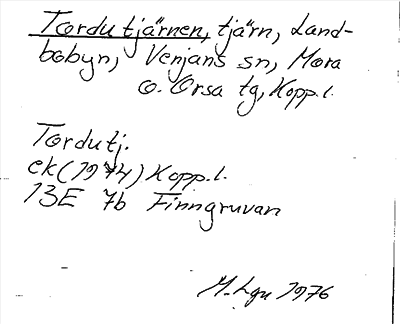 Tordutjärnen, tjärn, Land-
bobyn, Venjans sn, Mora
o. Orsa tg, Kopp.l.
Tordutj.
ek (1974) Kopp.l.
13E 7b Finngruvan
M. Lgn 1976